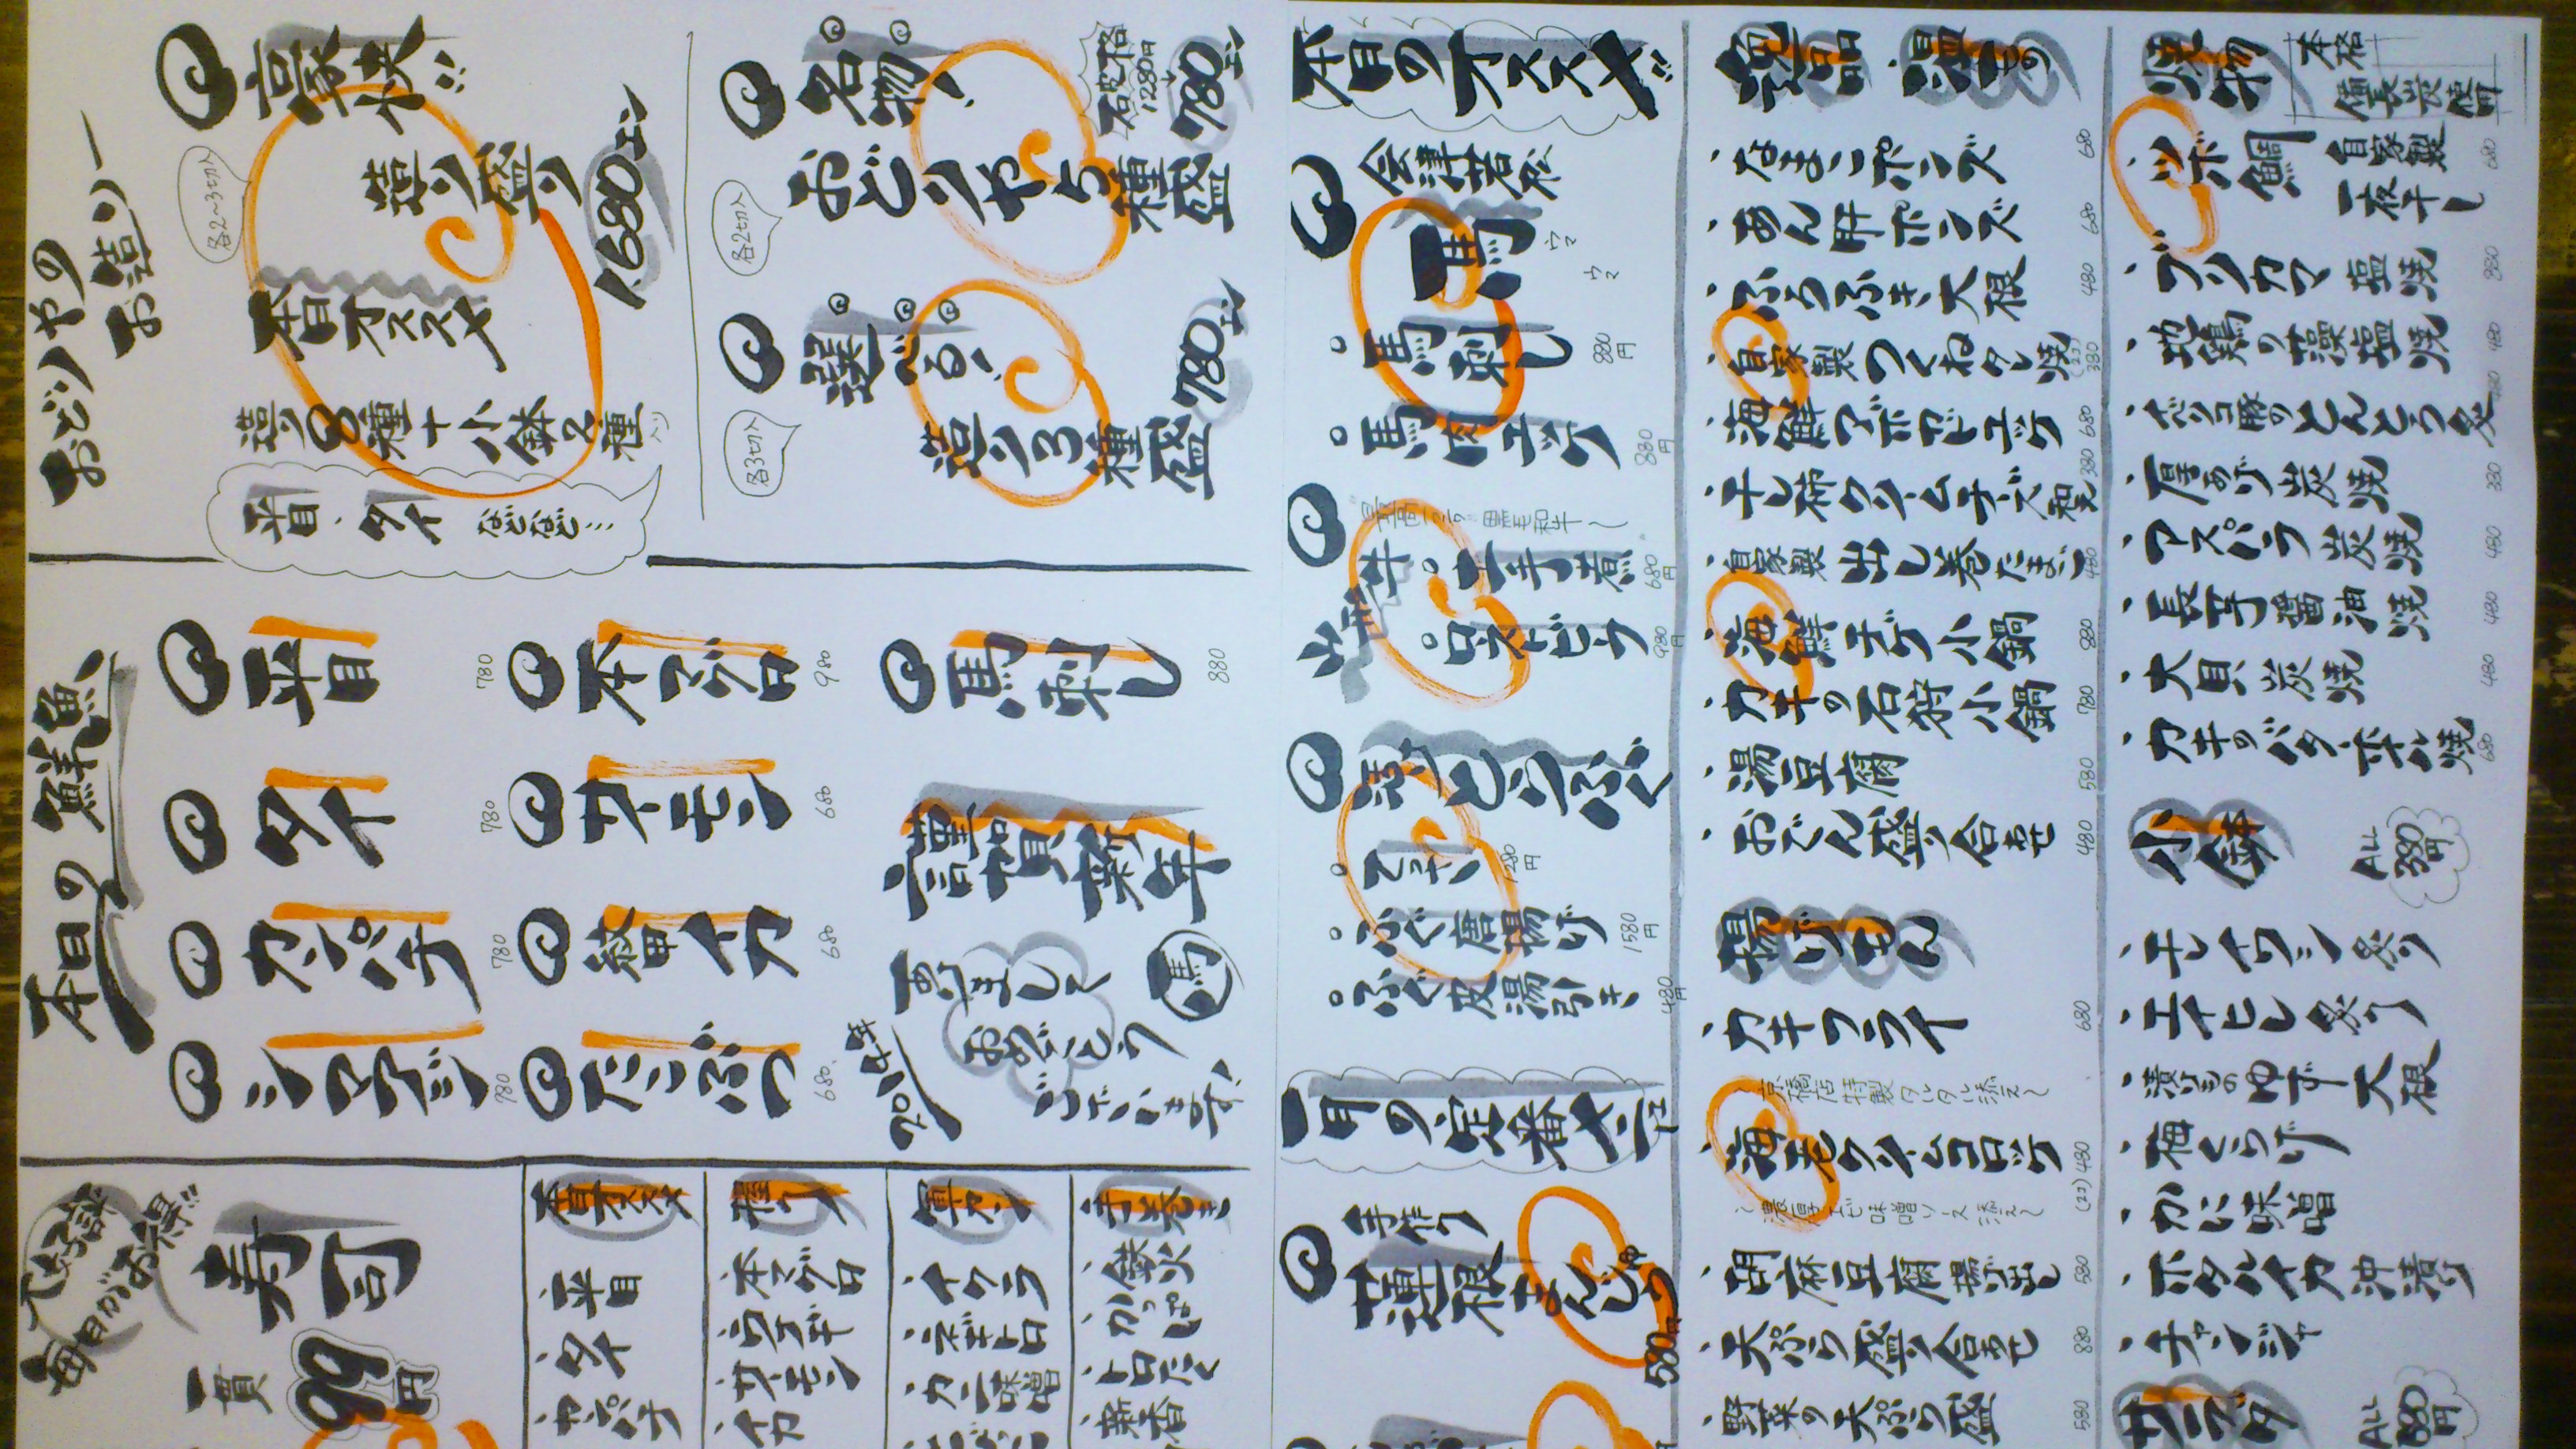 おどりやの
お造り
豪快!!
造り盛り
1,680エン
各2〜3切入
本日オススメ
造り8種+小鉢2種
入り
平目、タイ などなど…
名物!
おどりや5種盛
破格
1280円
780エン
各2切入
選べる!
造り3種盛
780エン
各3切入
本日の鮮魚
平目 780
タイ 780
カンパチ 780
シマアジ 780
本マグロ 980
サーモン 680
紋甲イカ 680
たこぶつ 680
馬刺し 880
謹賀新年
あけまして
おめでとう
ございます!
2014年
馬
大好評
毎日がお得!!
寿司
一貫 99円
本日オススメ
・平目
・タイ
・カンパチ
握り
・本マグロ
・ウナギ
・サーモン
・イカ
軍カン
・イクラ
・ネギトロ
・カニ味噌
手巻き
・鉄火
・かっぱ
・トロたく
・新香
本日のオススメ!!
会津若松
馬
ウマ
ウマ
馬刺し 880円
馬肉ユッケ 880円
黒毛和牛〜
牛
ローストビーフ 980円
680円
とらふぐ
てっさ 1280円
ふぐ唐揚げ 1580円
ふぐ皮湯引き 480円
一月の定番
手作り
蓮根まんじゅう
580円
絶品 温もの
・なまこポンズ 680
・あん肝ポンズ 680
・ふろふき大根 480
・自家製つくねタレ焼(2コ) 380
・海鮮アボカドユッケ 680
・干し柿クリームチーズ和え 380
・自家製出し巻たまご 480
・海鮮チゲ小鍋 880
・カキの石狩小鍋 780
・湯豆腐 580
・おでん盛り合せ 480
揚げもん
・カキフライ 680
〜京橋店特製タルタル添え〜
・海老クリームコロッケ(2コ) 480
〜濃厚エビ味噌ソース添え〜
・胡麻豆腐揚げ出し 580
・天ぷら盛り合せ 880
・野菜の天ぷら盛 580
焼物
本格
備長炭使用
・ツボ鯛 自家製
一夜干し 680
・ブリカマ塩焼 880
・地鶏の藻塩焼 480
・ベリコ豚のとんとろ炙 480
・厚あげ炭焼 380
・アスパラ炭焼 480
・長芋醤油焼 480
・大貝炭焼 480
・カキのバターホイル焼 680
小鉢
ALL
380円
・チレイワシ炙り
・エイヒレ炙り
・漬けものゆず大根
・梅くらげ
・かに味噌
・ホタルイカ沖漬け
・チャンジャ
サラダ
ALL
580円